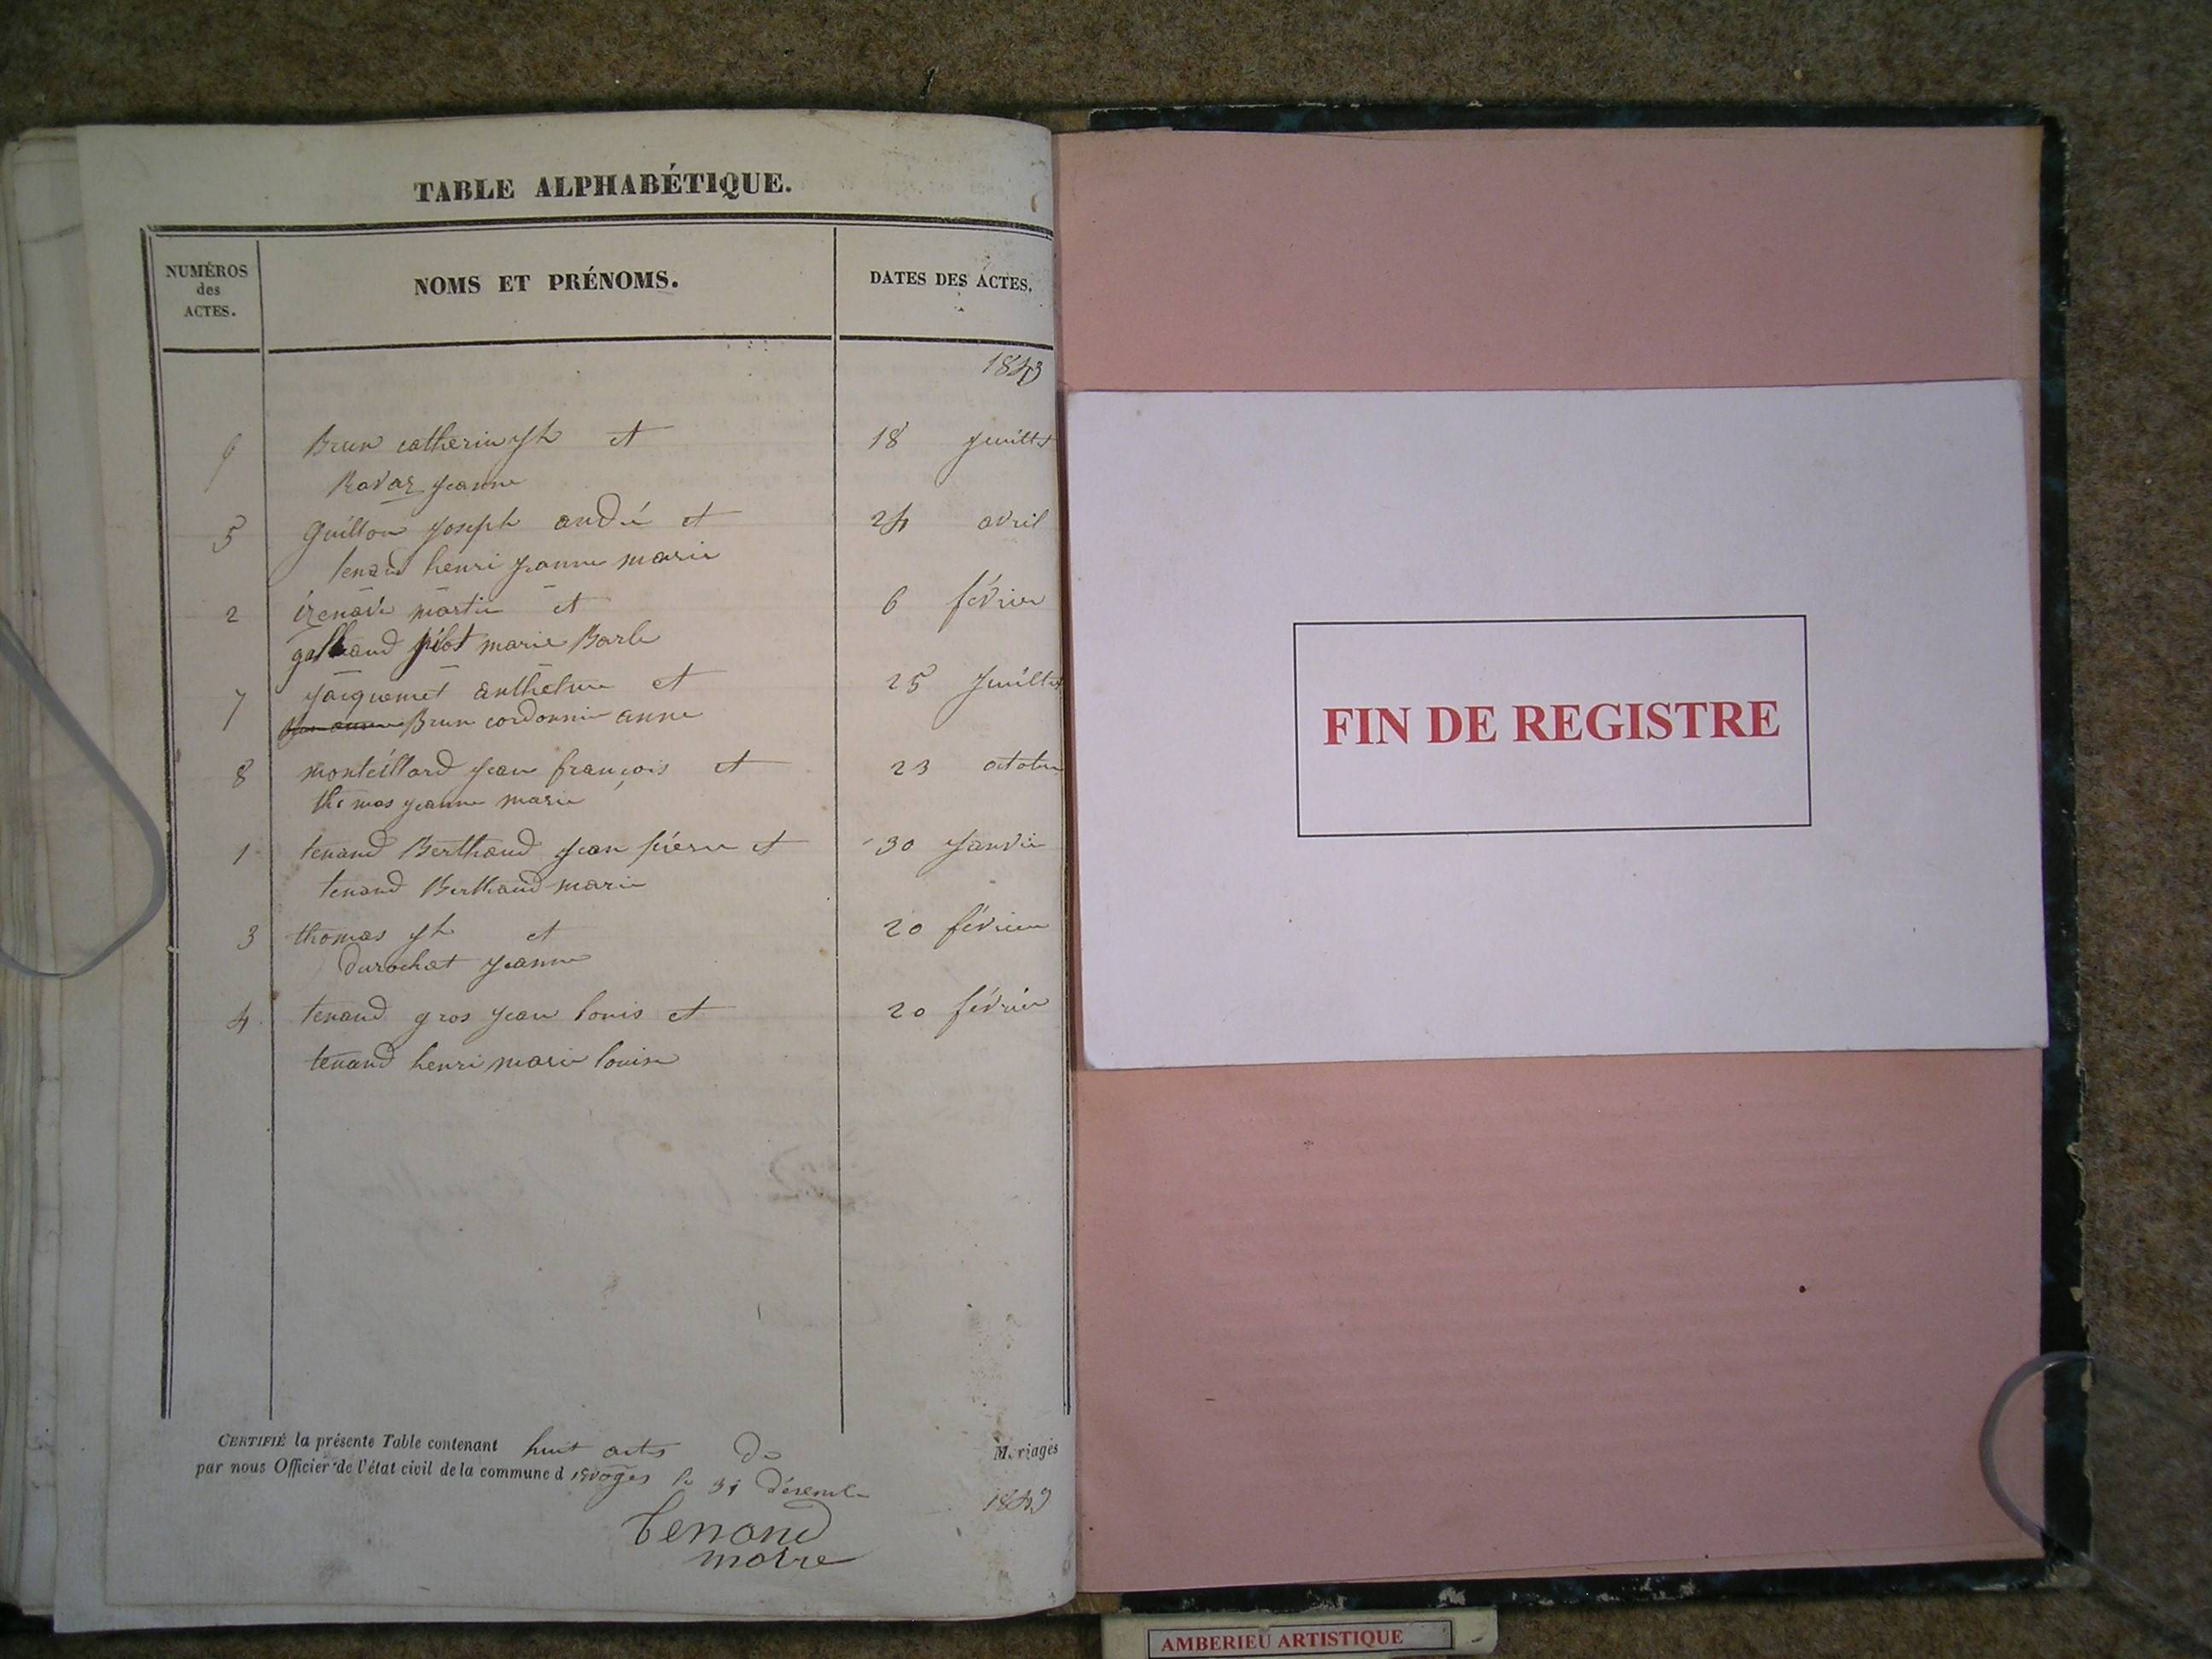 TABLE ALPHABÉTIQUE.
NUMÉROS
des
ACTES.
NOMS ET PRÉNOMS.
DATES DES ACTES.
1843
6 Brun catherin jh et 18 juillet
Ravaz jeanne
5 Guillon joseph andré et 24 avril
tenand henri jeanne marie
2 martin et 6 février
pilot marie Barbe
7 jacquemet anthelme et 25 juillet
Brun cordonnier anne
8 monteillard jean françois et 23 octobre
thomas jeanne marie
1 tenand Berthaud jean piérre et 30 janvier
tenand Berthaud marie
3 thomas jh et 20 février
durochat jeanne
4 tenand gros jean louis et 20 février
tenand henri marie louise
CERTIFIÉ la présente Table contenant huit actes de Mariages
par nous Officier de l'état civil de la commune d le 31 décembre 1843
Tenand
maire
FIN DE REGISTRE
AMBERIEU ARTISTIQUE